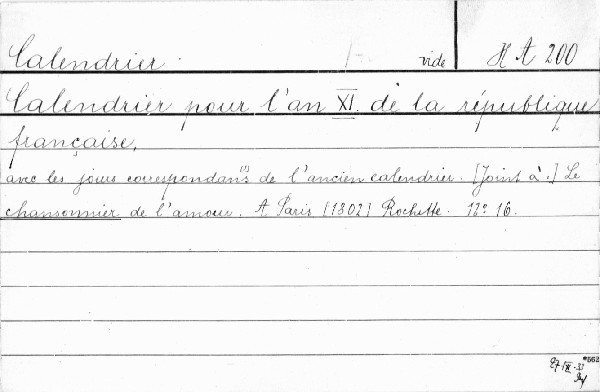 Calendrier. vide H A 200
Calendrier pour l'an XI. de la république
française,
avec les jours correspondan(t)s de l'ancien calendrier. [Joint à:] Le
chansonnier de l'amour. A Paris [1802] Rochette. 12º 16.
*562